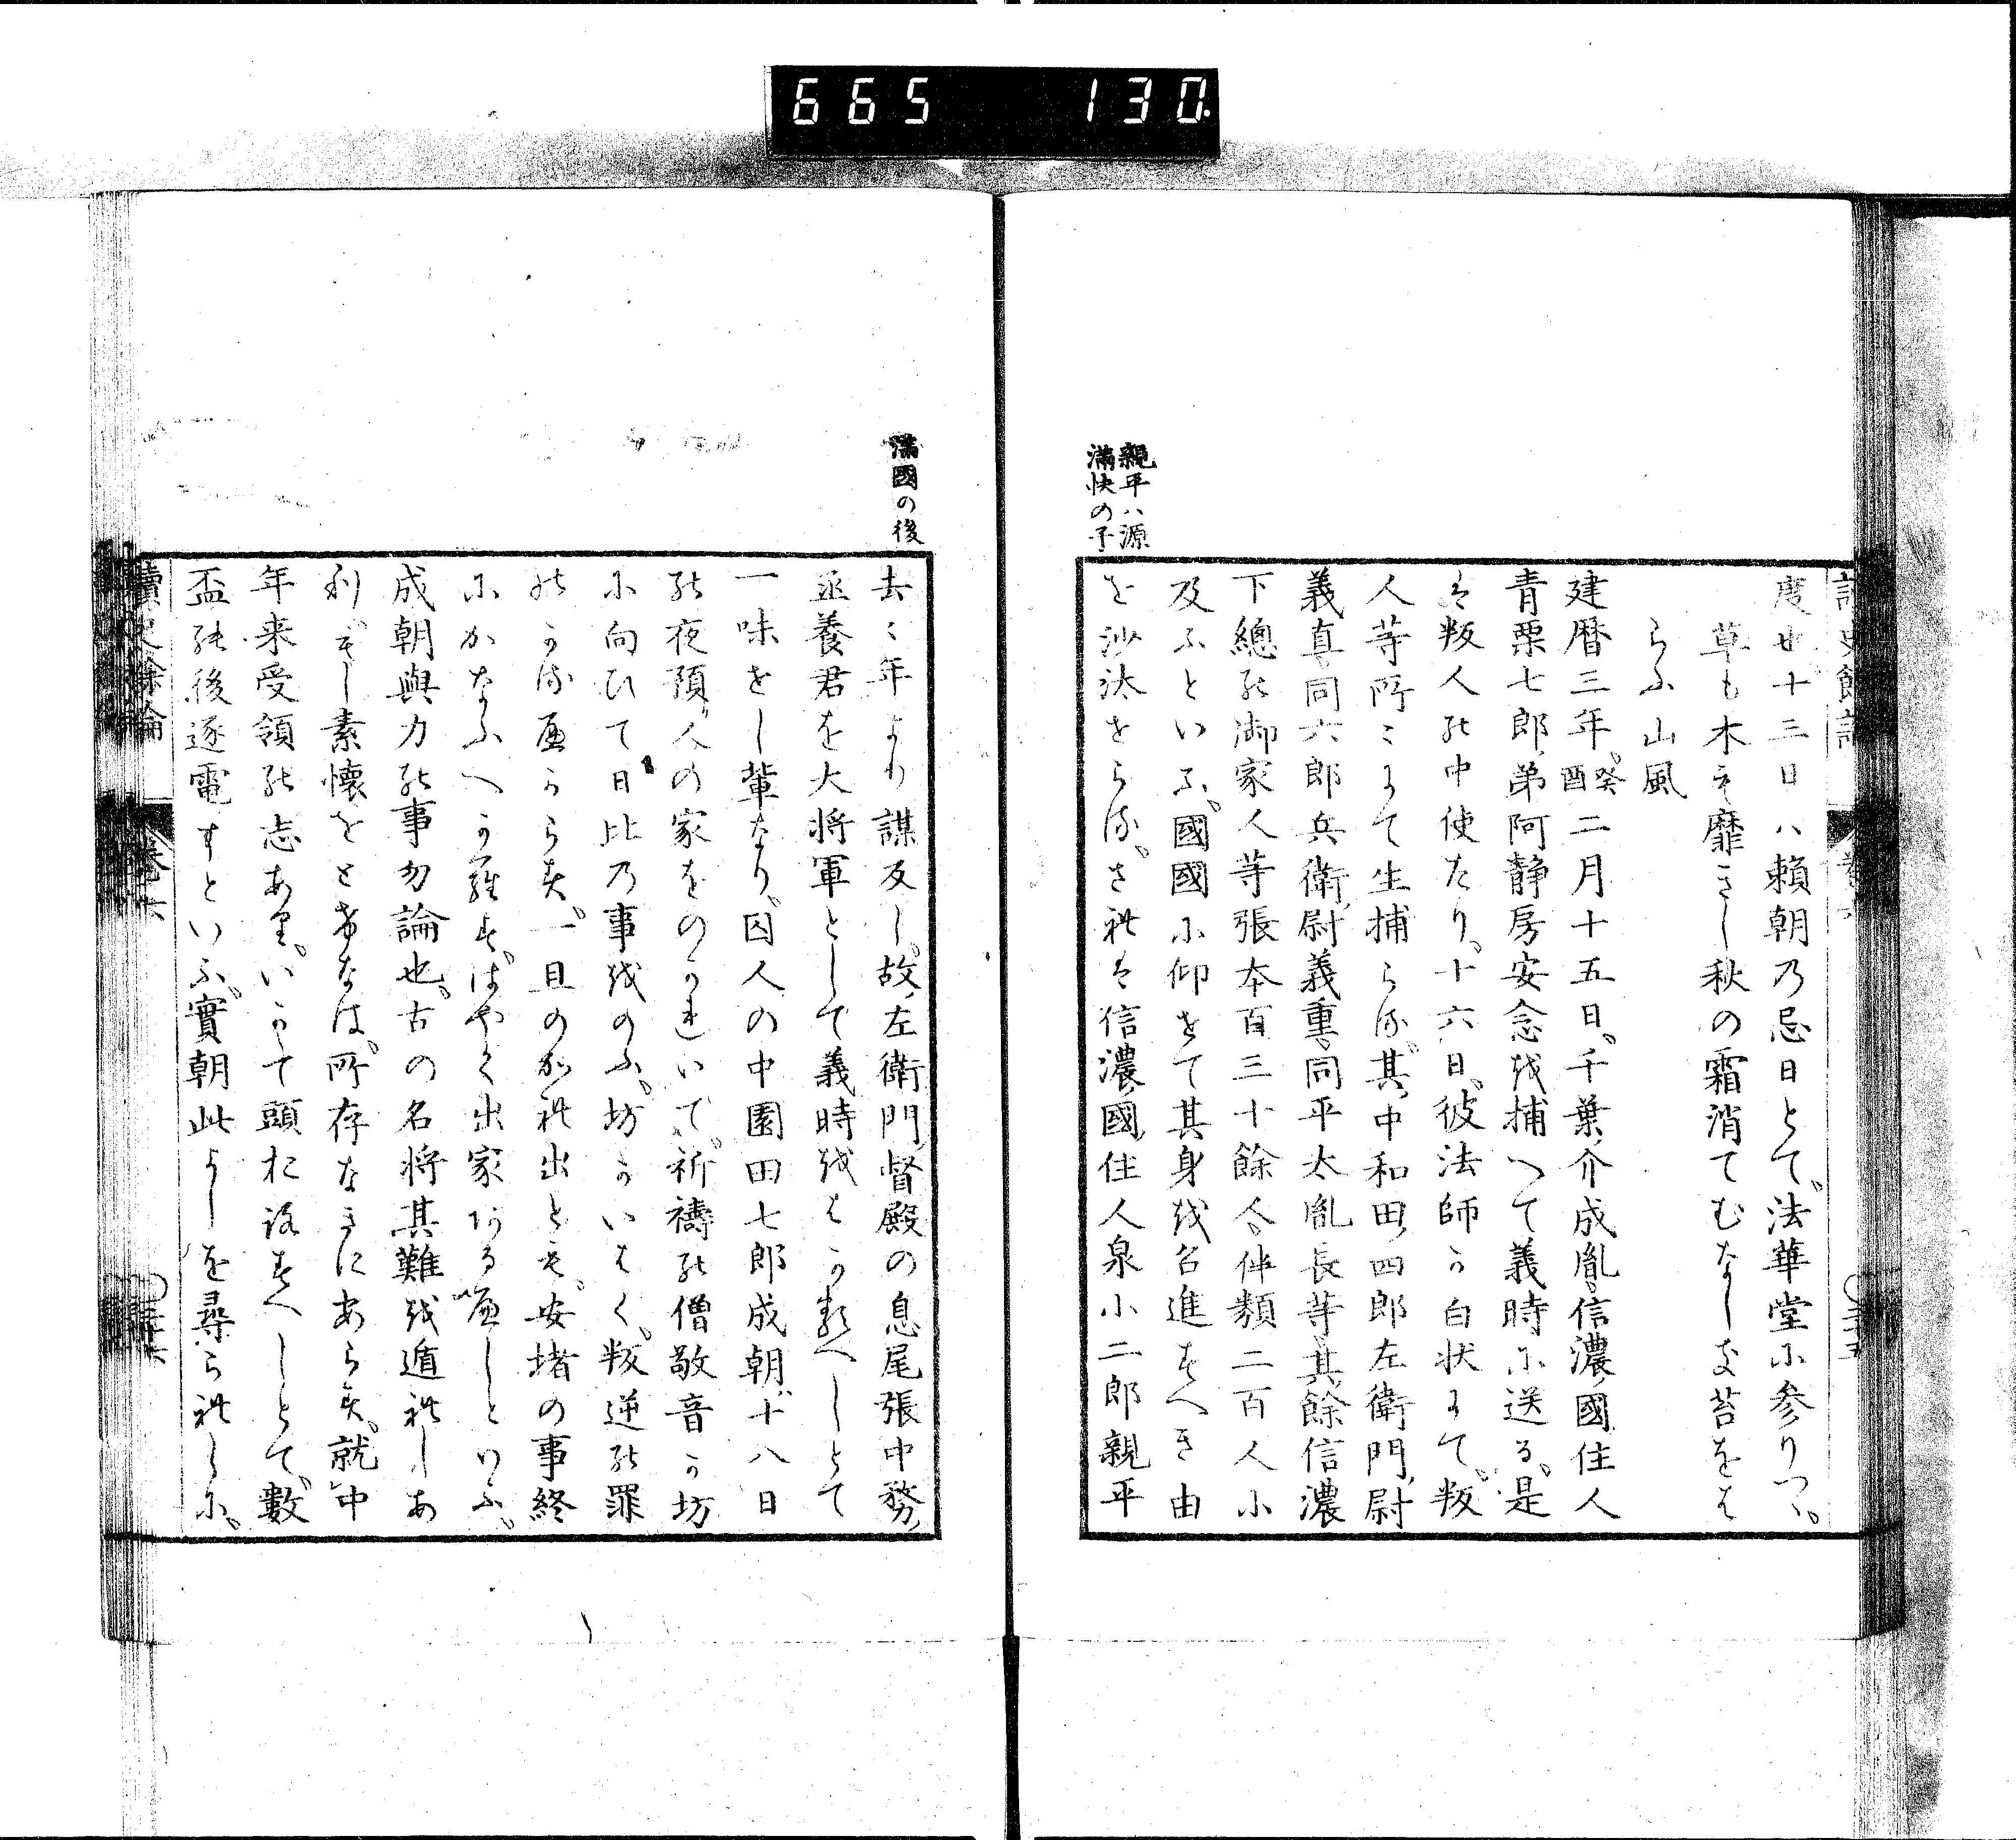 665 130
度〻廿十三日ハ頼朝乃忌日とて、法華堂尓参りつゝ。
草も木も靡きし秋の霜消てむなしき苔をは
らふ山風
建暦三年癸酉二月十五日。千葉介成胤。信濃國住人
青栗七郎弟阿静房安念越捕へて義時尓送る。是
は叛人能中使たり。十六日。彼法師可白状によて。叛
人等所々よて生捕らる。其中和田四郎左衛門尉
義直同六郎兵衛尉義重同平太胤長等其餘信濃
下總能御家人等張本百三十餘人伴類二百人小
及ふといふ。國國尓仰せて其身越召進すへき由
を沙汰せらる。されは信濃國住人泉小二郎親平
親平ハ源
満快の子
満國の後
去々年より謀反し。故左衛門督殿の息尾張中務
丞養君を大将軍として義時越はかるへしとて
一味せし輩なり。囚人の中園田七郎成朝十八日
能夜預人の家をのかれいて。祈禱能僧敬音可坊
尓向ひて日比乃事越のふ。坊可いはく。叛逆能罪
能可る遍からす。一旦のかれ出とも。安堵の事終
尓かなふへ可羅す。はやく出家阿る遍しといふ。
成朝與力能事勿論也。古の名将其難越遁れしあ
利。そし素懐をとけなは。所存なきにあらす。就中
年来受領能志あり。いかて頭於落すへしとて。數
盃能後逐電すといふ。實朝此よしを尋られしに。
讀史餘論
巻六